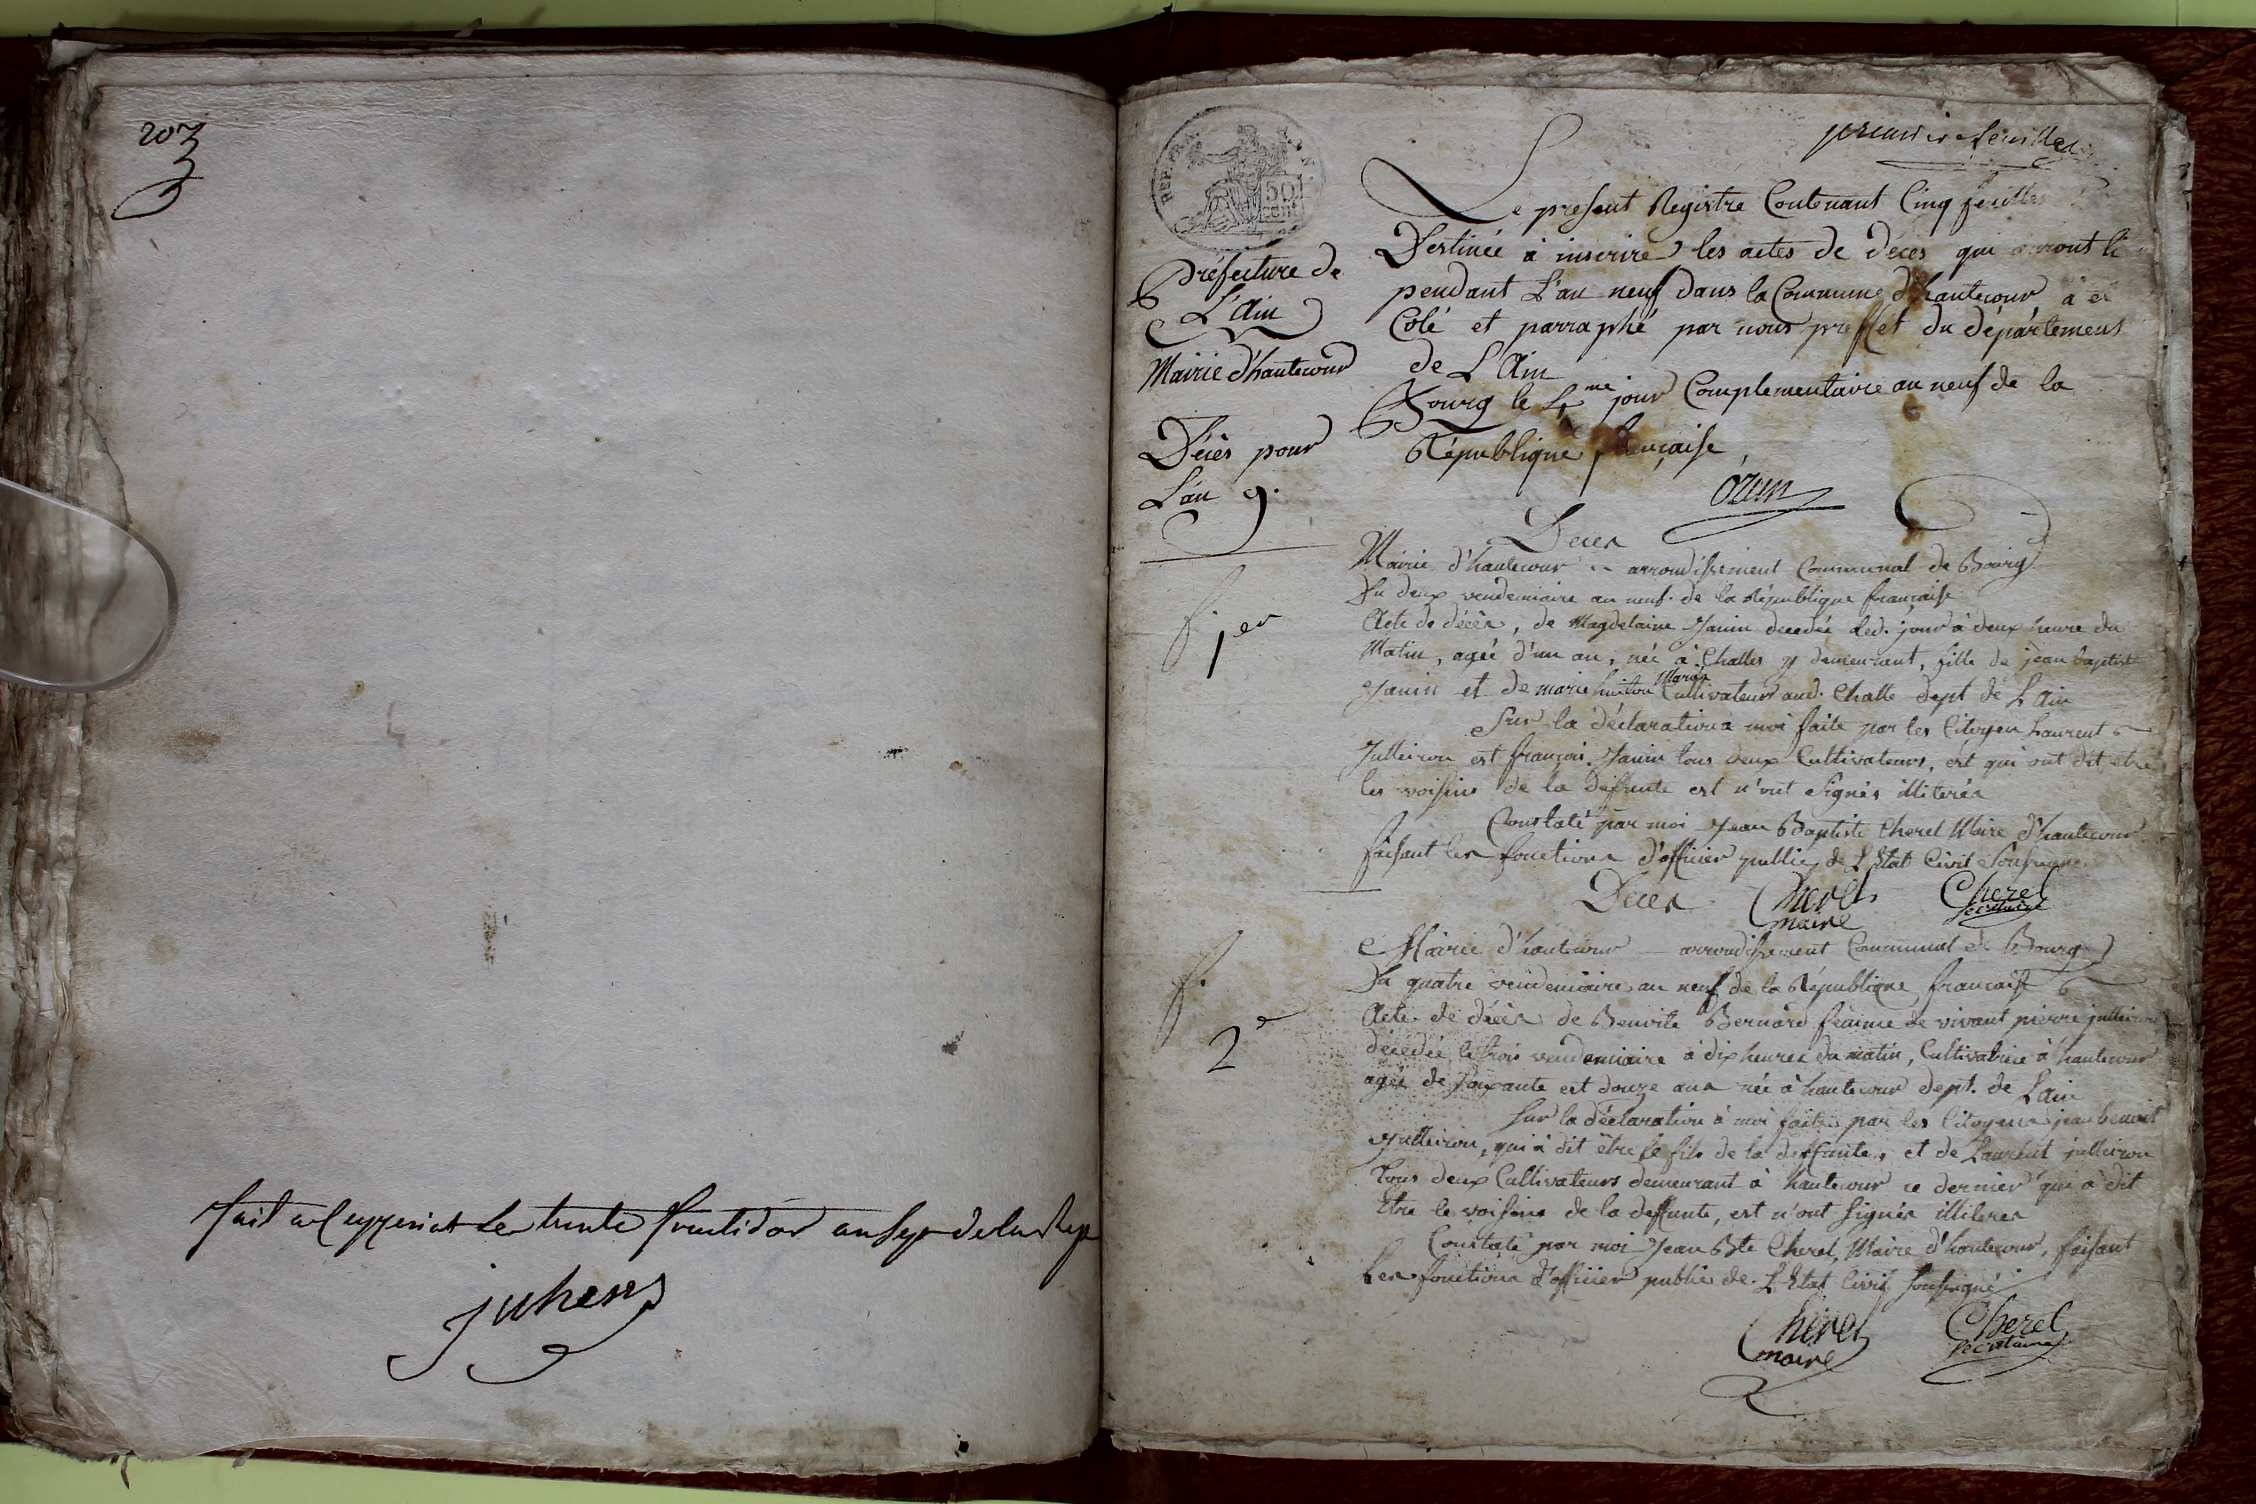 203
fait a Ceyzeriat le trente fructidor an sept de la Rep
juhens
premier feuillet
REP. FRA
50
cent
Préfecture de
L'Ain
Mairie d'hautecour
Décès pour
L'an 9.
Le présent Registre Contenant Cinq feuilles
Destinée à inscrire les actes de décès qui auront li
pendant L'an neuf dans la Commune d'hautecour à et
Coté et parraphé par nous preffet du département
de L'Ain
Bourg le 4me jour Complementaire an neuf de la
République française
Ozun
Deces
Mairie d'hautecour arrondissement Communal de Bourg
Du deux vendemiaire an neuf de la République française
1er
Acte de décès, de Magdelaine Janin decedée led. jour à deux heure du
Matin, agéé d'un an, née à Challes y demeurant, fille de jean baptiste
Janin et de marie Cultivateur aud. Challe dept de L'Ain
Sur la déclaration a moi faite par les Citoyen Laurent
Julleiron est françois Janin tous deux Cultivateurs, est qui ont dit etre
les voisins de la deffunte est n'ont signés illiterés
Constaté par moi Jean Baptiste Cherel Maire d'hautecour
faisant les fonctions d'officier public de L'Etat Civil Soussigné
Deces Cherel Cherel
maire secretaire
Mairie d'hautecour arrondissement Communal de Bourg
Du quatre vendemiaire an neuf de la République française
2e
Acte de décès de Benoite Bernard femme de vivant pierre julleiron
décedée le trois vendemiaire à dix heures du matin, Cultivatrice à hautecour
agée de soixante est douze ans née à hautecour dept. de L'ain
Sur la déclaration à moi faite par les Citoyens jean benoit
Julleiron, qui à dit être le fils de la deffunte, et de Laurent julleiron
tous deux Cultivateurs demeurant à hautecour ce dernier qui à dit
Etre le voisins de la deffunte, est n'ont signés illiteres
Constaté par moi Jean Bte Cherel, Maire d'hautecour, faisant
Les fonctions d'officier public de L'Etat Civil soussigné
Cherel Cherel
maire secretaire